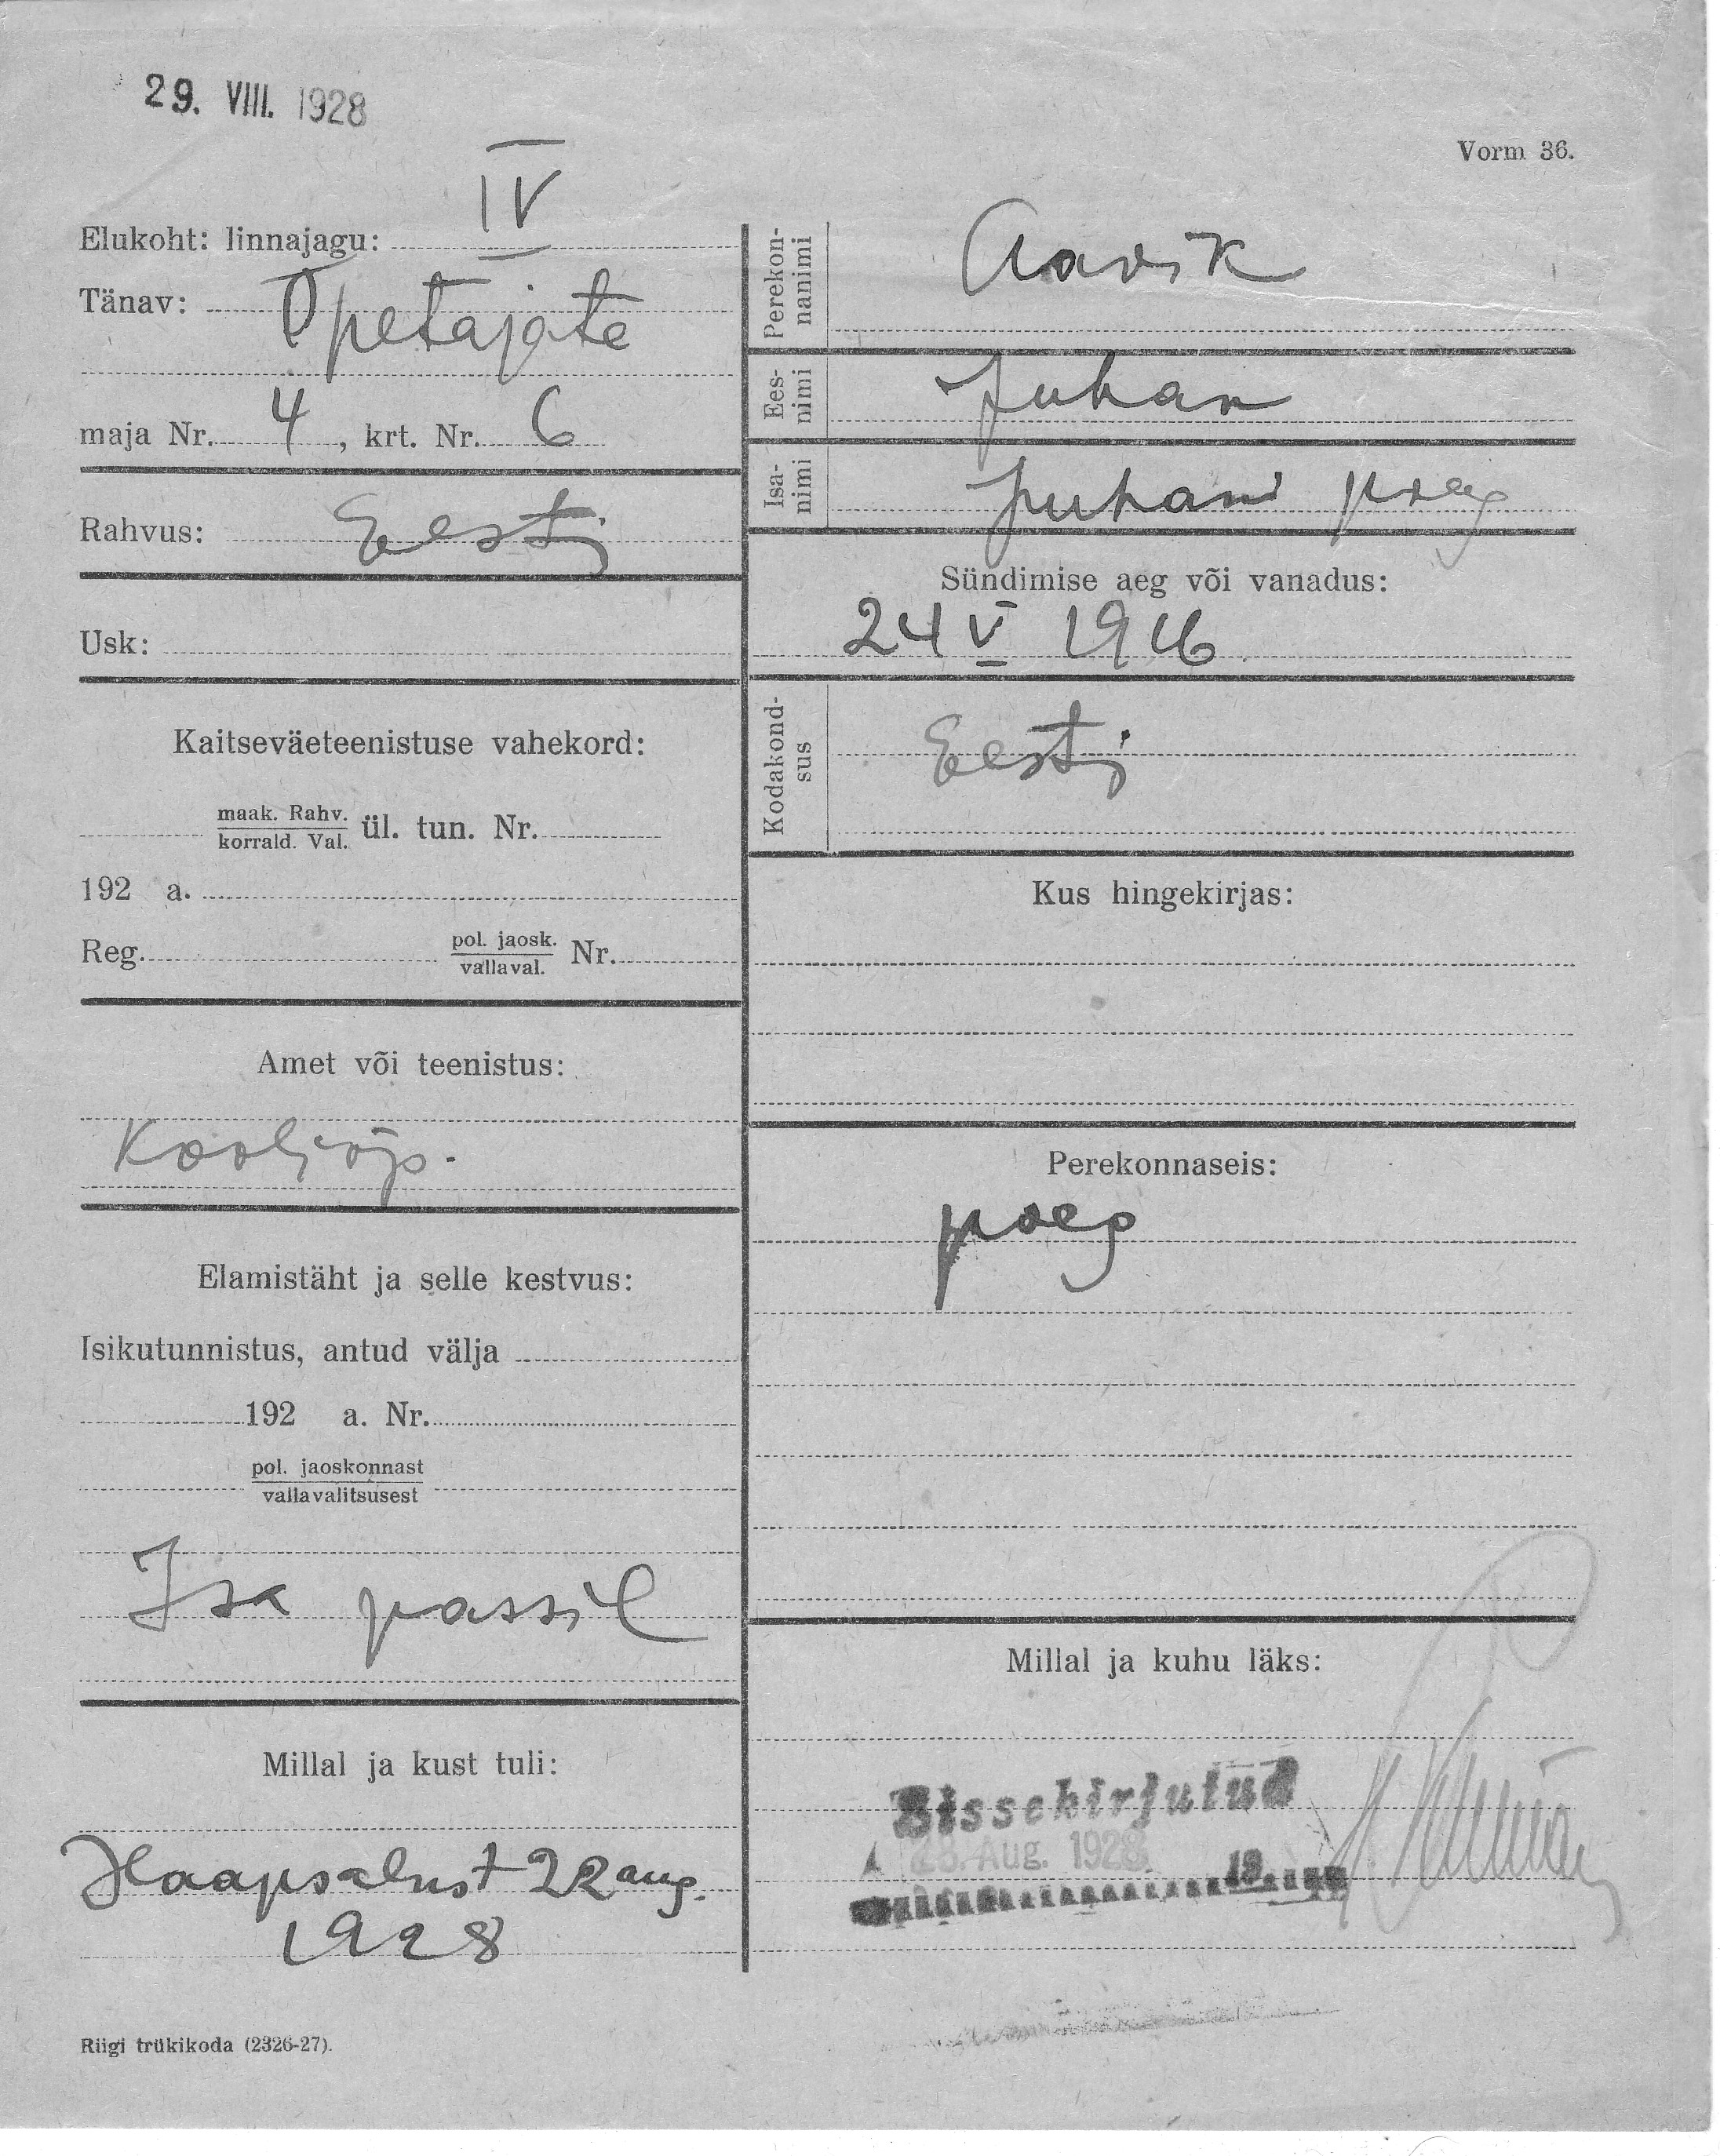 29. VIII. 1928
Vorm 36.
Elukoht: linnajagu: IV
Tänav: Õpetajate
maja Nr. 4, krt. Nr. 6
Rahvus: Eesti
Usk:
Kaitseväeteenistuse vahekord:
maak. Rahv.
korrald. Val. ül. tun. Nr.
192 a.
Reg. pol. jaosk. Nr.
vallaval.
Amet või teenistus:
Kooliõp.
Elamistäht ja selle kestvus:
Isikutunnistus, antud välja
192 a. Nr.
pol. jaoskonnast
vallavalitsusest
Isa passil
Millal ja kust tuli:
Haapsalust 22 aug.
1928
Riigi trükikoda (2326-27).
Perekonnanimi Aavik
Eesnimi Juhan
Isanimi Juhani poeg
Sündimise aeg või vanadus:
24 V 1916
Kodakondsus Eesti
Kus hingekirjas:
Perekonnaseis:
poeg
Millal ja kuhu läks:
Sissekirjutud
28. Aug. 1928
19